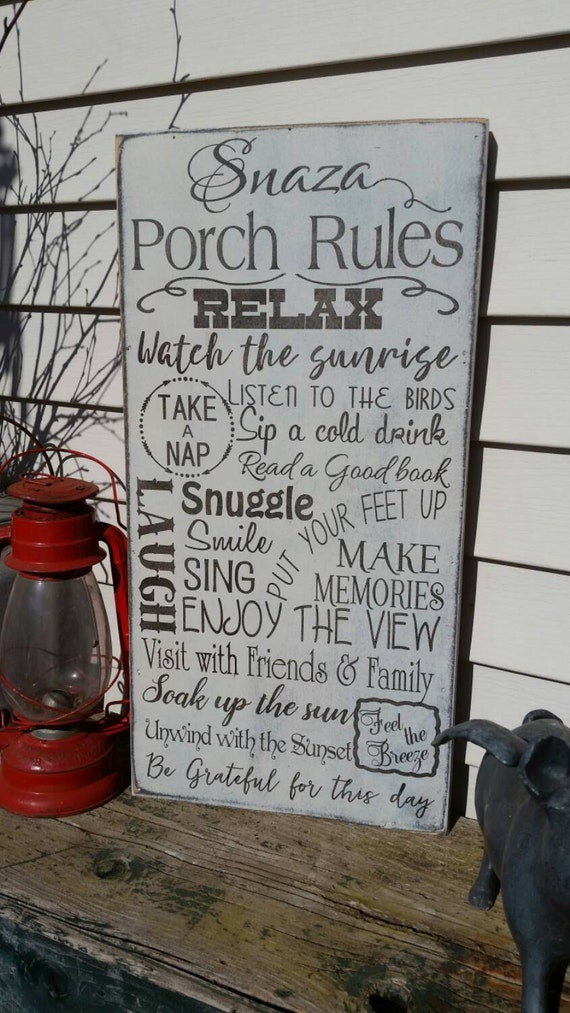 Snaza
Porch Rules
RELAX
Watch the sunrise
LISTEN TO THE BIRDS
TAKE
A
NAP
Sip a cold drink
Read a Good book
LAUGH
Snuggle
PUT YOUR FEET UP
Smile
SING
MAKE
MEMORIES
ENJOY THE VIEW
Visit with Friends & Family
Soak up the sun
Feel
the
Breeze
Unwind with the Sunset
Be Grateful for this day